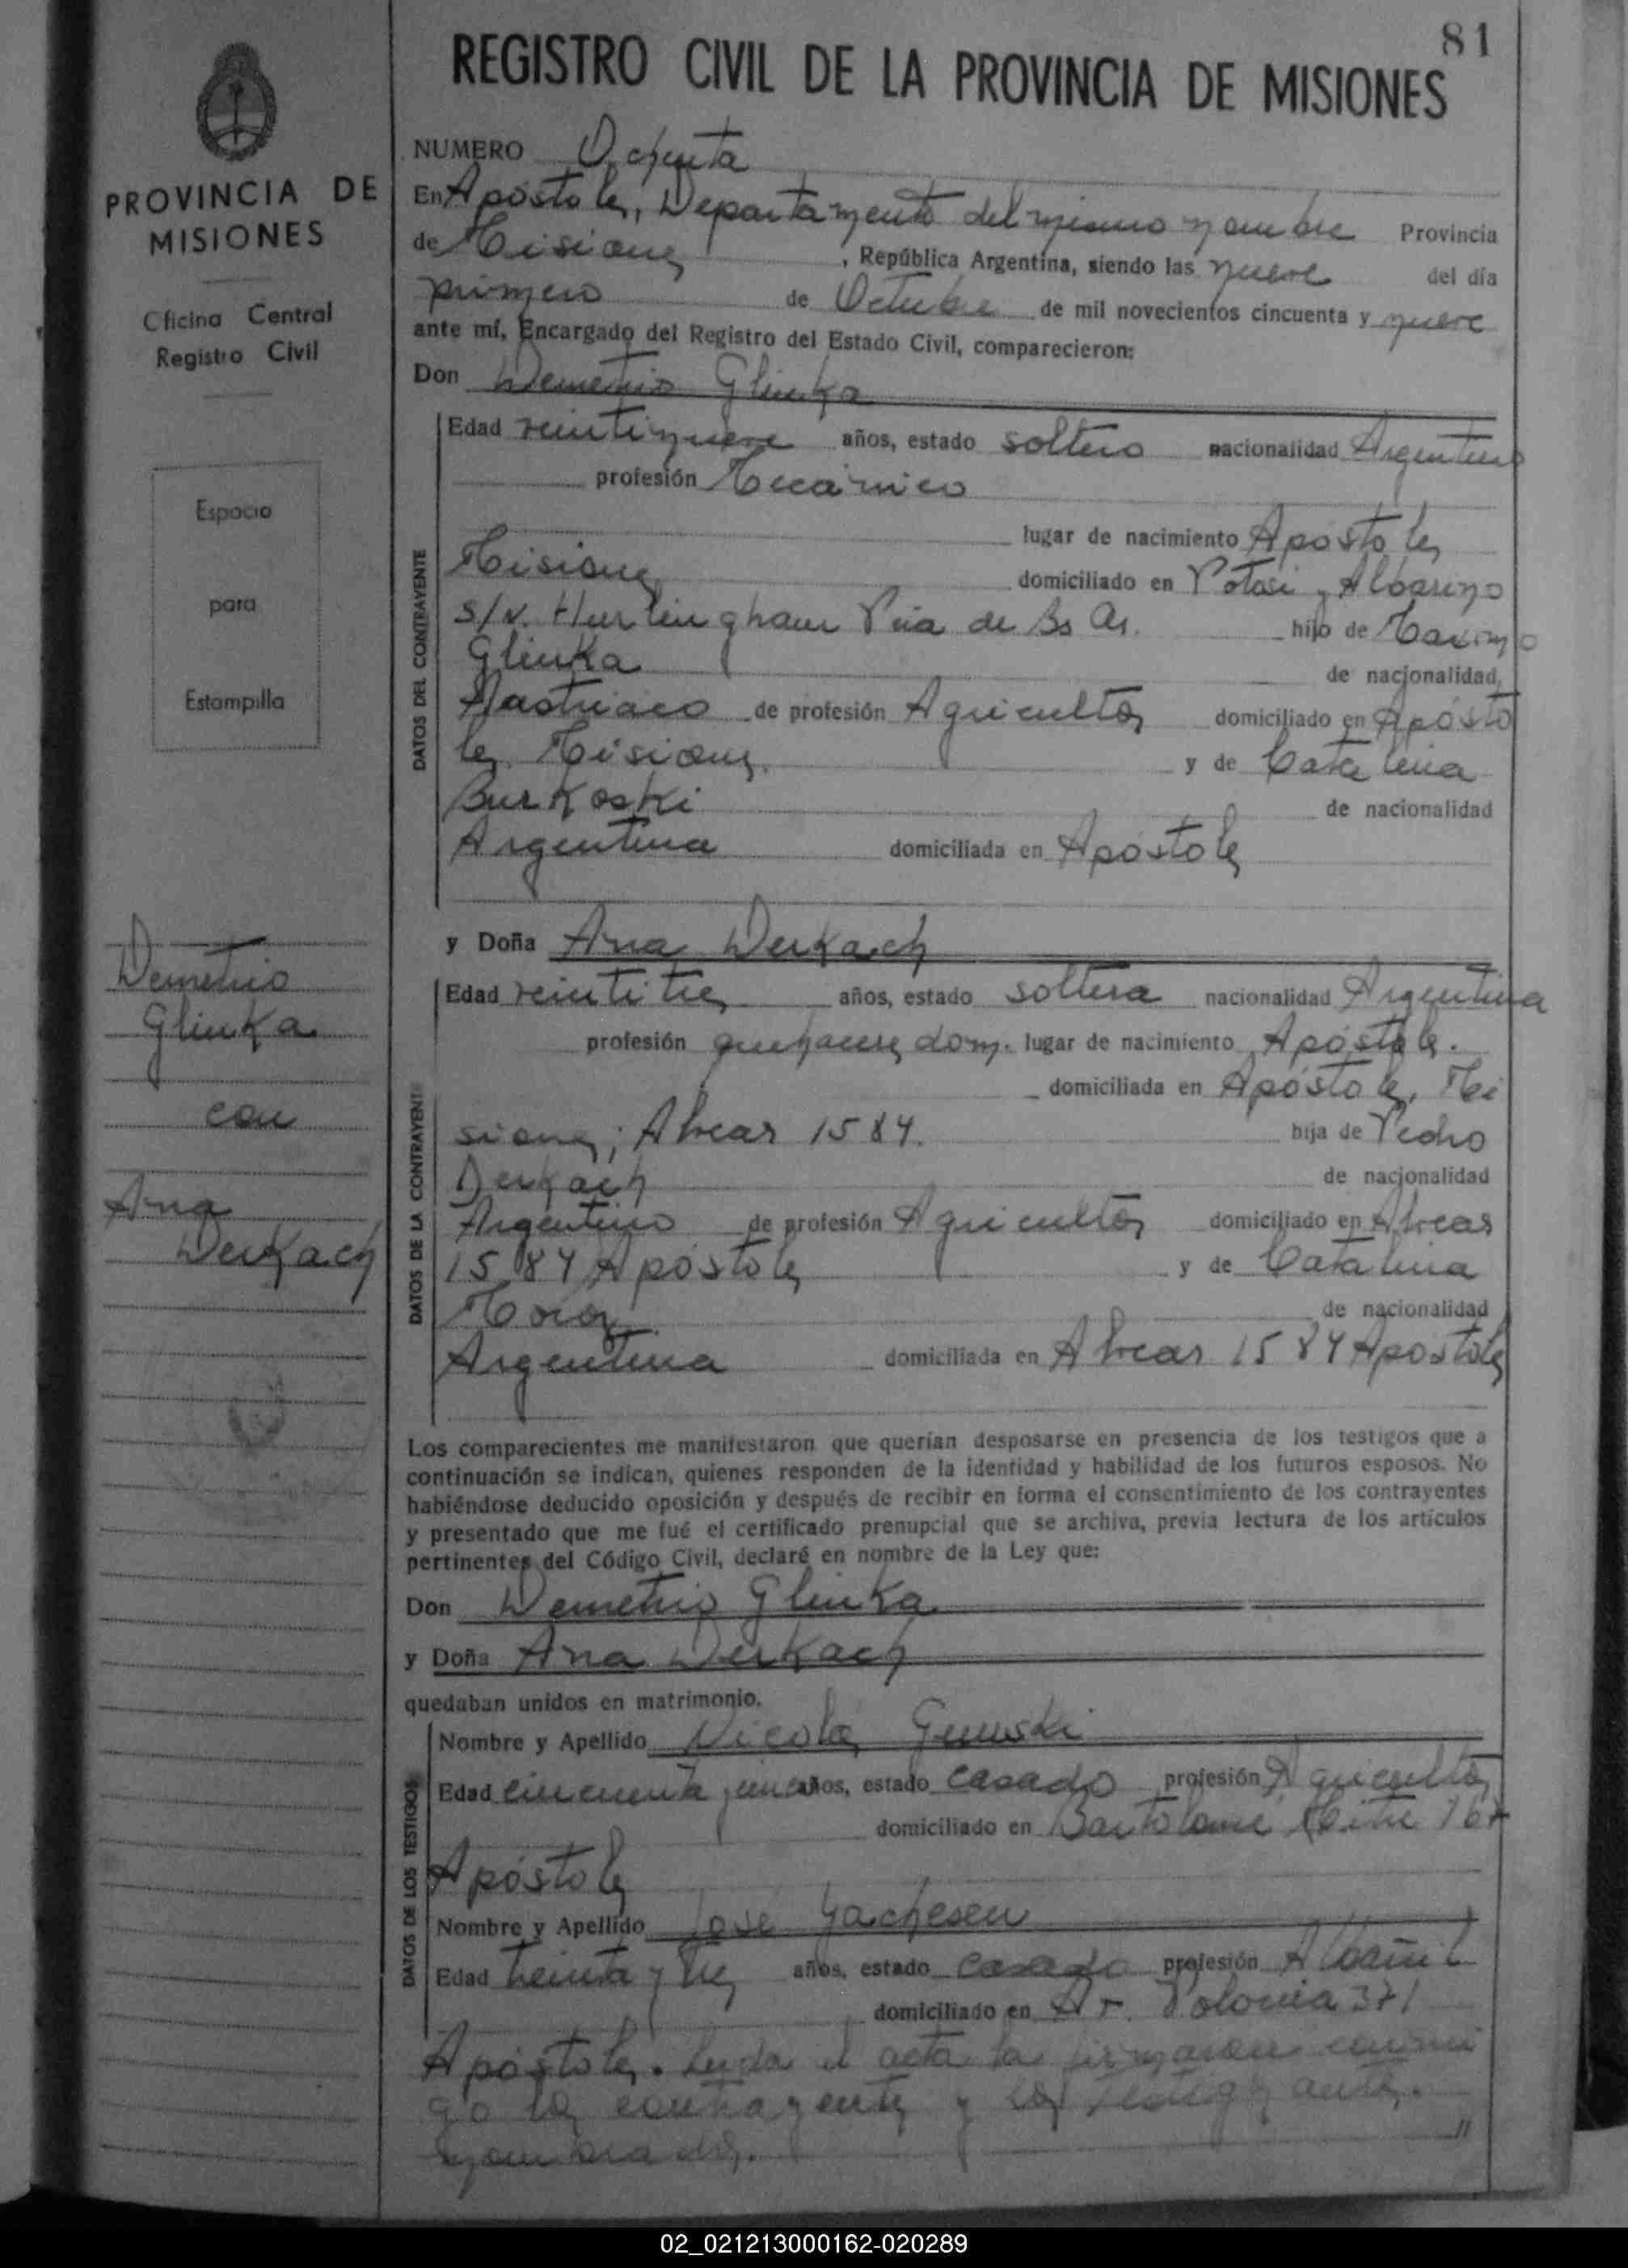 81
REGISTRO CIVIL DE LA PROVINCIA DE MISIONES
PROVINCIA DE
MISIONES
Oficina Central
Registro Civil
Espacio
para
Estampilla
Demetrio
Glinka
con
Ana
Derkach
NUMERO Ochenta
En Apóstoles, Departamento del mismo nombre Provincia
de Misiones, República Argentina, siendo las nueve del día
primero de Octubre de mil novecientos cincuenta y nueve
ante mí, Encargado del Registro del Estado Civil, comparecieron:
Don Demetrio Glinka
DATOS DEL CONTRAYENTE
Edad veintinueve años, estado soltero nacionalidad Argentino
profesión Mecánico
lugar de nacimiento Apóstoles
Misiones domiciliado en Potosi y Albarino
s/N. Hurlingham Pcia de Bs As. hijo de Maximo
Glinka de nacionalidad
Austriaco de profesión Agricultor domiciliado en Apósto
les Misiones. y de Catalina
Burkoski de nacionalidad
Argentina domiciliada en Apóstoles
y Doña Ana Derkach
DATOS DE LA CONTRAYENTE
Edad veintitres años, estado soltera nacionalidad Argentina
profesión quehaceres dom. lugar de nacimiento Apóstoles.
domiciliada en Apóstoles, Mi
siones; Alvear 1584. hija de Pedro
Derkach de nacionalidad
Argentino de profesión Agricultor domiciliado en Alvear
1584 Apóstoles y de Catalina
Moroz de nacionalidad
Argentina domiciliada en Alvear 1584 Apóstoles
Los comparecientes me manifestaron que querían desposarse en presencia de los testigos que a
continuación se indican, quienes responden de la identidad y habilidad de los futuros esposos. No
habiéndose deducido oposición y después de recibir en forma el consentimiento de los contrayentes
y presentado que me fué el certificado prenupcial que se archiva, previa lectura de los artículos
pertinentes del Código Civil, declaré en nombre de la Ley que:
Don Demetrio Glinka
y Doña Ana Derkach
quedaban unidos en matrimonio.
DATOS DE LOS TESTIGOS
Nombre y Apellido Nicolás
Edad cincuenta años, estado casado profesión Agricultor
domiciliado en Bartolome Mitre
Apóstoles
Nombre y Apellido José
Edad treinta y tres años, estado casado profesión Albañil
domiciliado en Av. Polonia 371
Apóstoles. Leida el acta la firmaron conmi
go los contrayentes y los testigos antes.
nombrados.
02_021213000162-020289